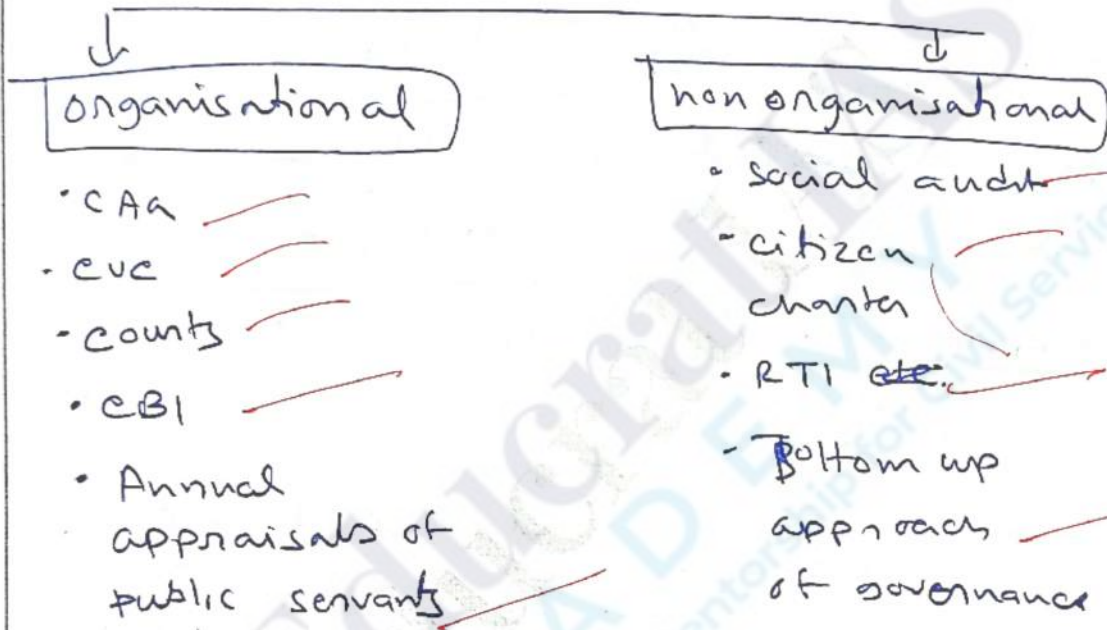 organisational
• CAG
• CVC
• courts
• CBI
• Annual
appraisals of
public servants
non organisational
• social audit
• citizen
charter
• RTI etc.
• Bottom up
approach
of governance